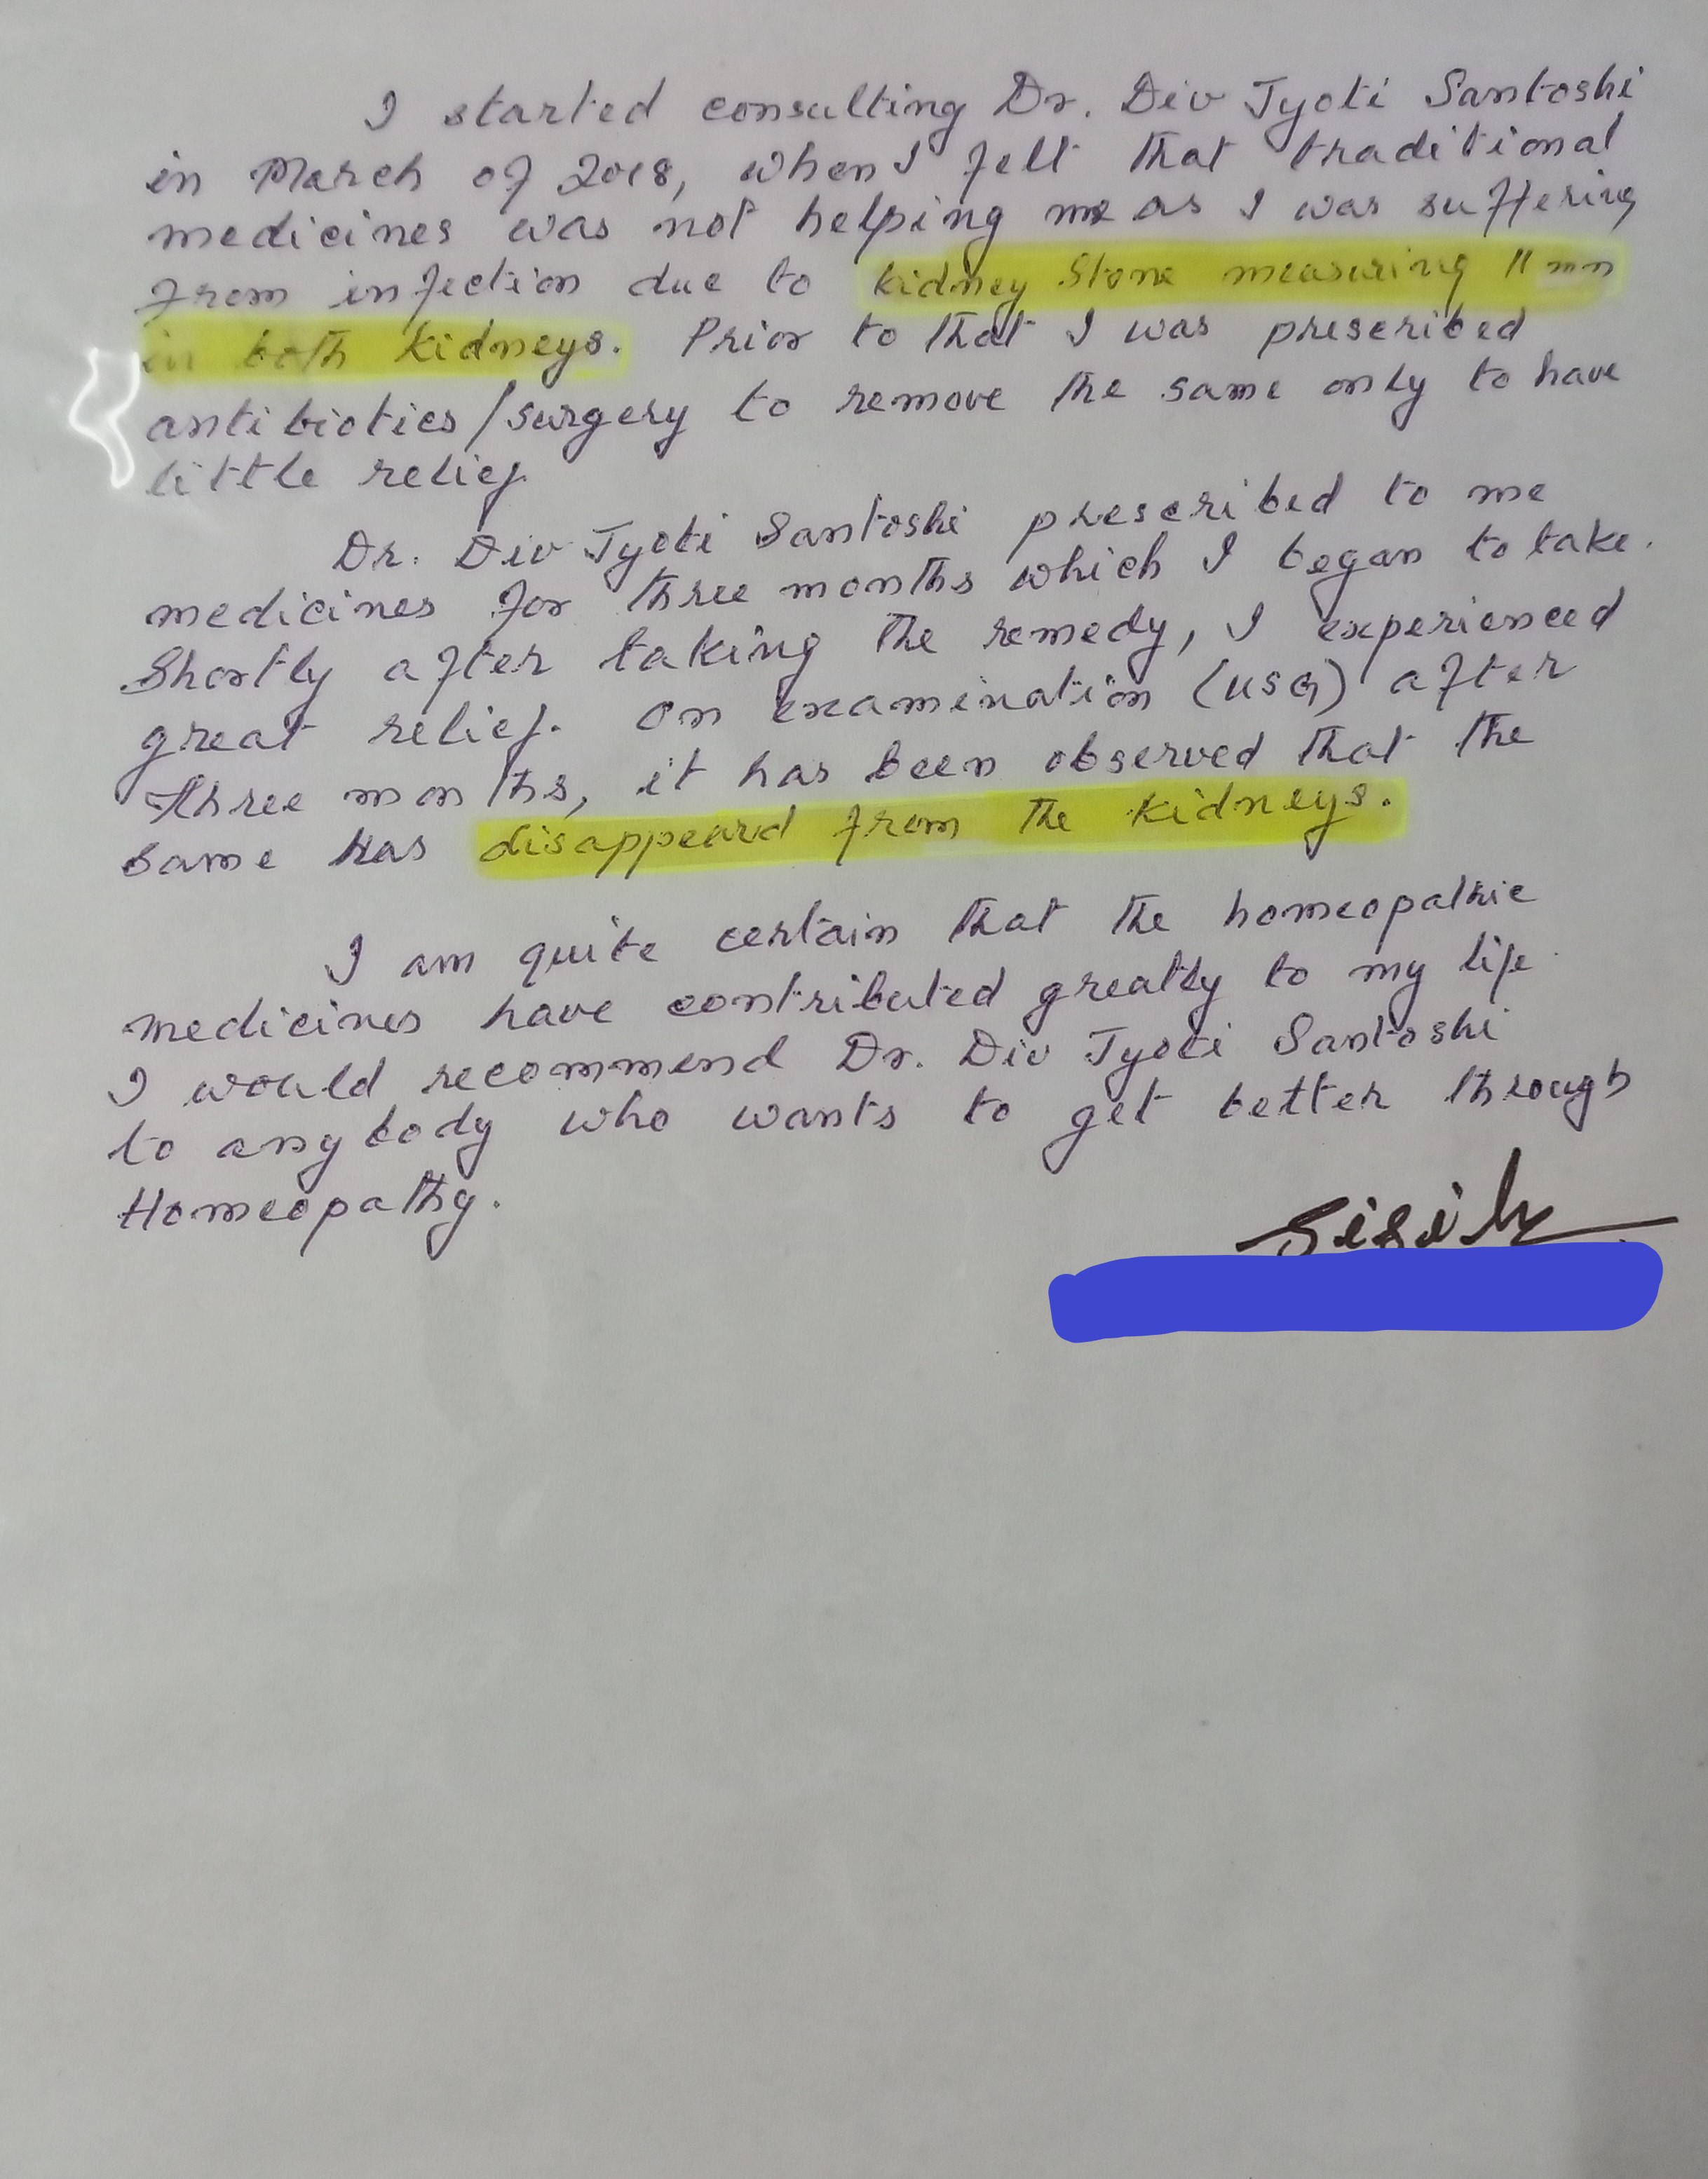 I started consulting Dr. Div Jyoti Santoshi
in March of 2018, when I felt that traditional
medicines was not helping me as I was suffering
from infection due to kidney stone measuring 11 mm
in both kidneys. Prior to that I was prescribed
antibiotics/surgery to remove the same only to have
little relief.
Dr. Div Jyoti Santoshi prescribed to me
medicines for three months which I began to take.
Shortly after taking the remedy, I experienced
great relief. On examination (USG) after
three months, it has been observed that the
same has disappeard from the kidneys.
I am quite certain that the homeopathic
medicines have contributed greatly to my life.
I would recommend Dr. Div Jyoti Santoshi
to anybody who wants to get better through
Homeopathy.